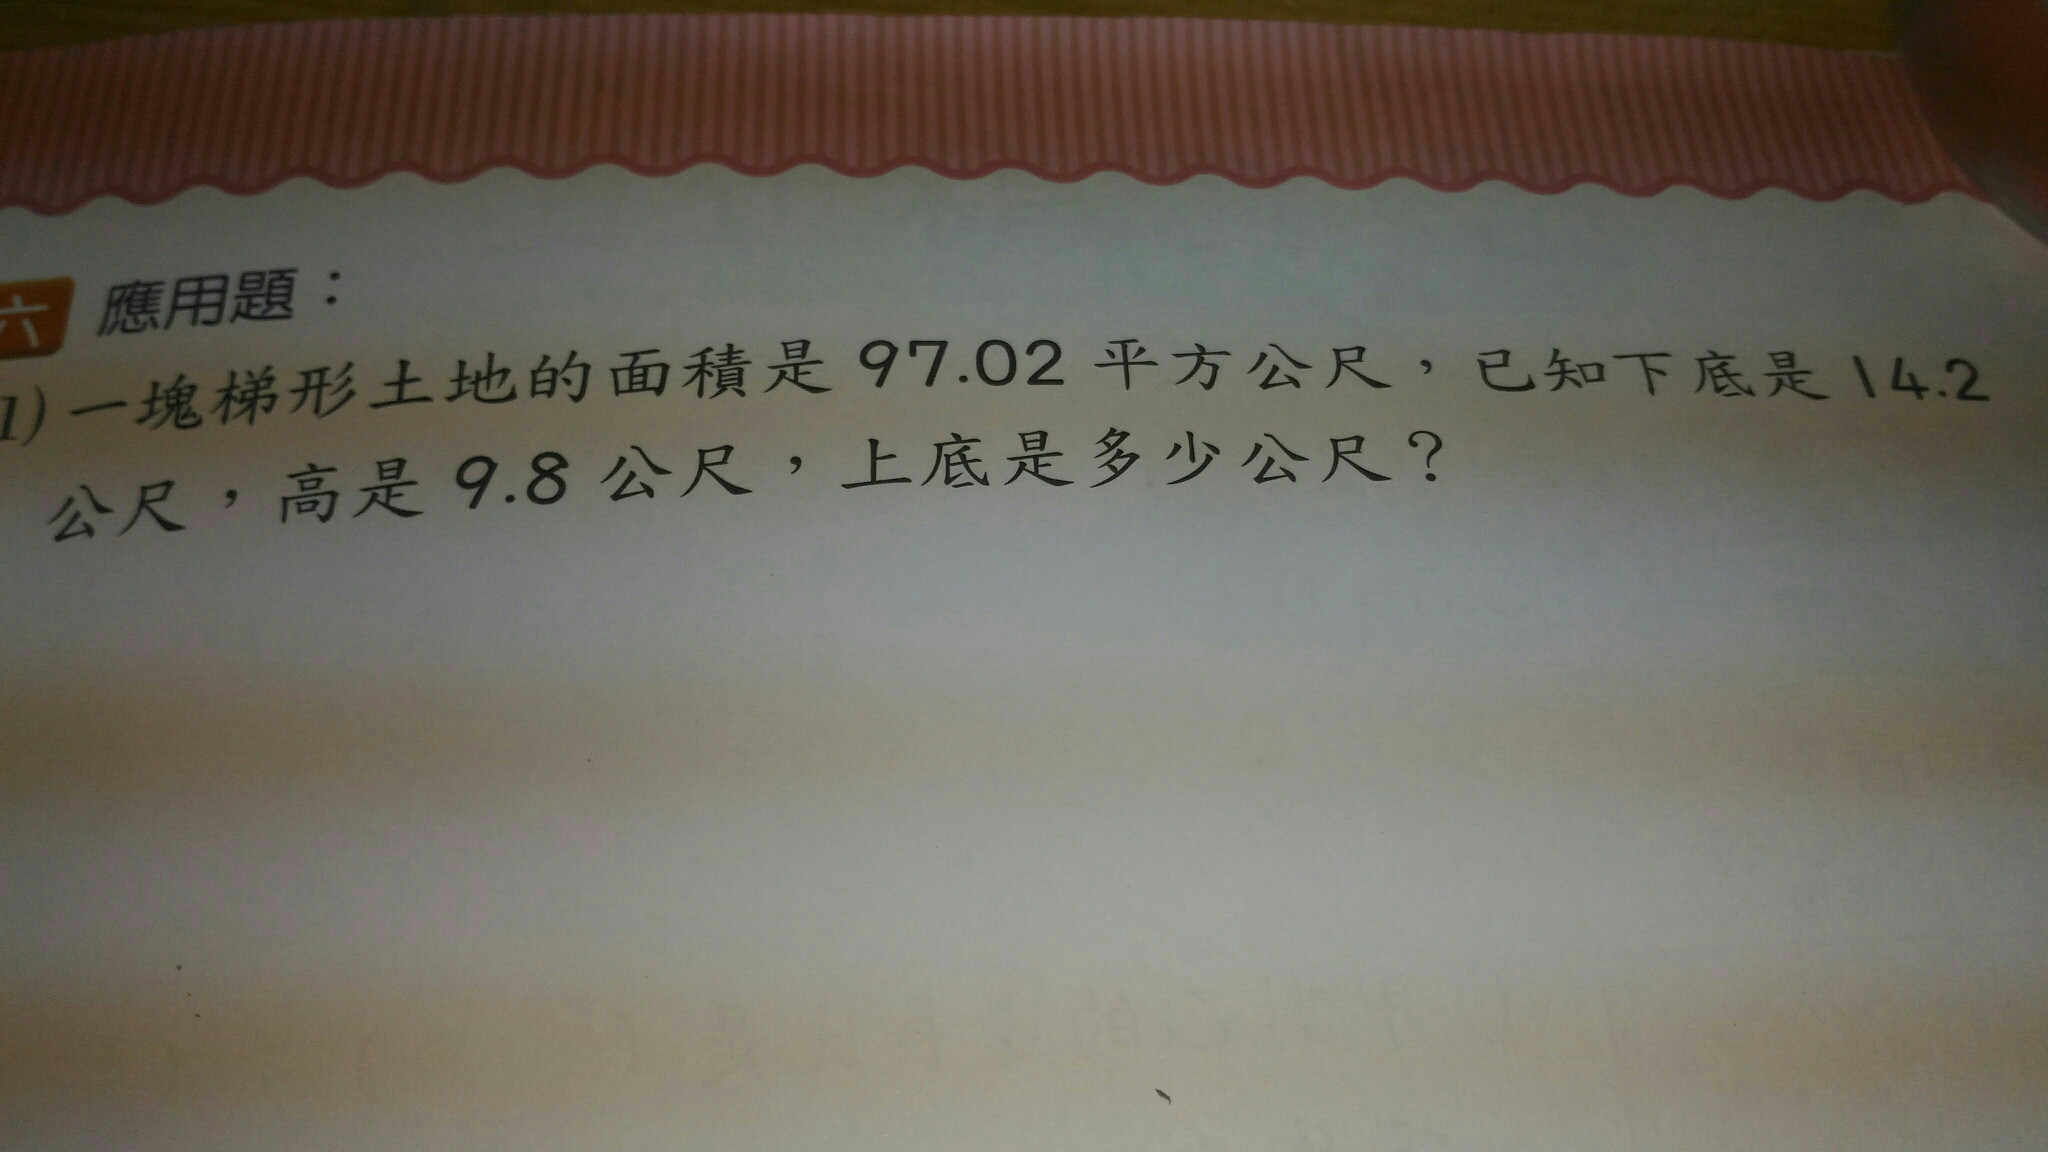 六 應用題：
1) 一塊梯形土地的面積是 97.02 平方公尺，已知下底是 14.2
公尺，高是 9.8 公尺，上底是多少公尺？